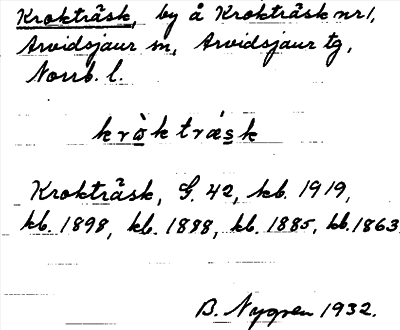 Krokträsk, by å Krokträsk nr 1,
Arvidsjaur sn, Arvidsjaur tg,
Norrb. l.
kròktrásk
Krokträsk, G. 42, kb. 1919,
kb. 1898, kb. 1888, kb. 1885, kb. 1863
B. Nygren 1932.